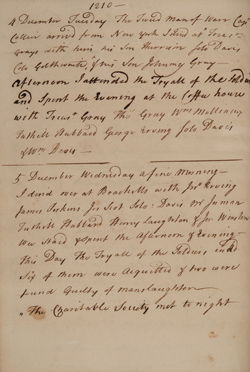 1210
4 December Tuesday. The Tweed Man of War Capt
Collier arrived from New York dined at Treasr
Grays with him his Son Harrison Solo Davis
Edw Goldthwait & his Son Johnny Gray
Afternoon I attended the Tryall of the Soldiers
and Spent the Evening at the Coffee house
with Treasr Gray Tho Gray Wm Molineux
Tuthill Hubbard George Erving Solo Davis
& Wm Davis
5 December Wednesday a fine Morning
I dined over at Bracketts with Jno Erving
James Perkins Jos Scot Solo Davis Mr Inman
Tuthill Hubbard Henry Laughton & Js Winslow
We Staid & Spent the Afternoon & Evening
This Day the Tryall of the Soldiers ended
Six of them were Acquitted & two were
found Guilty of manslaughter
The Charitable Society met to night